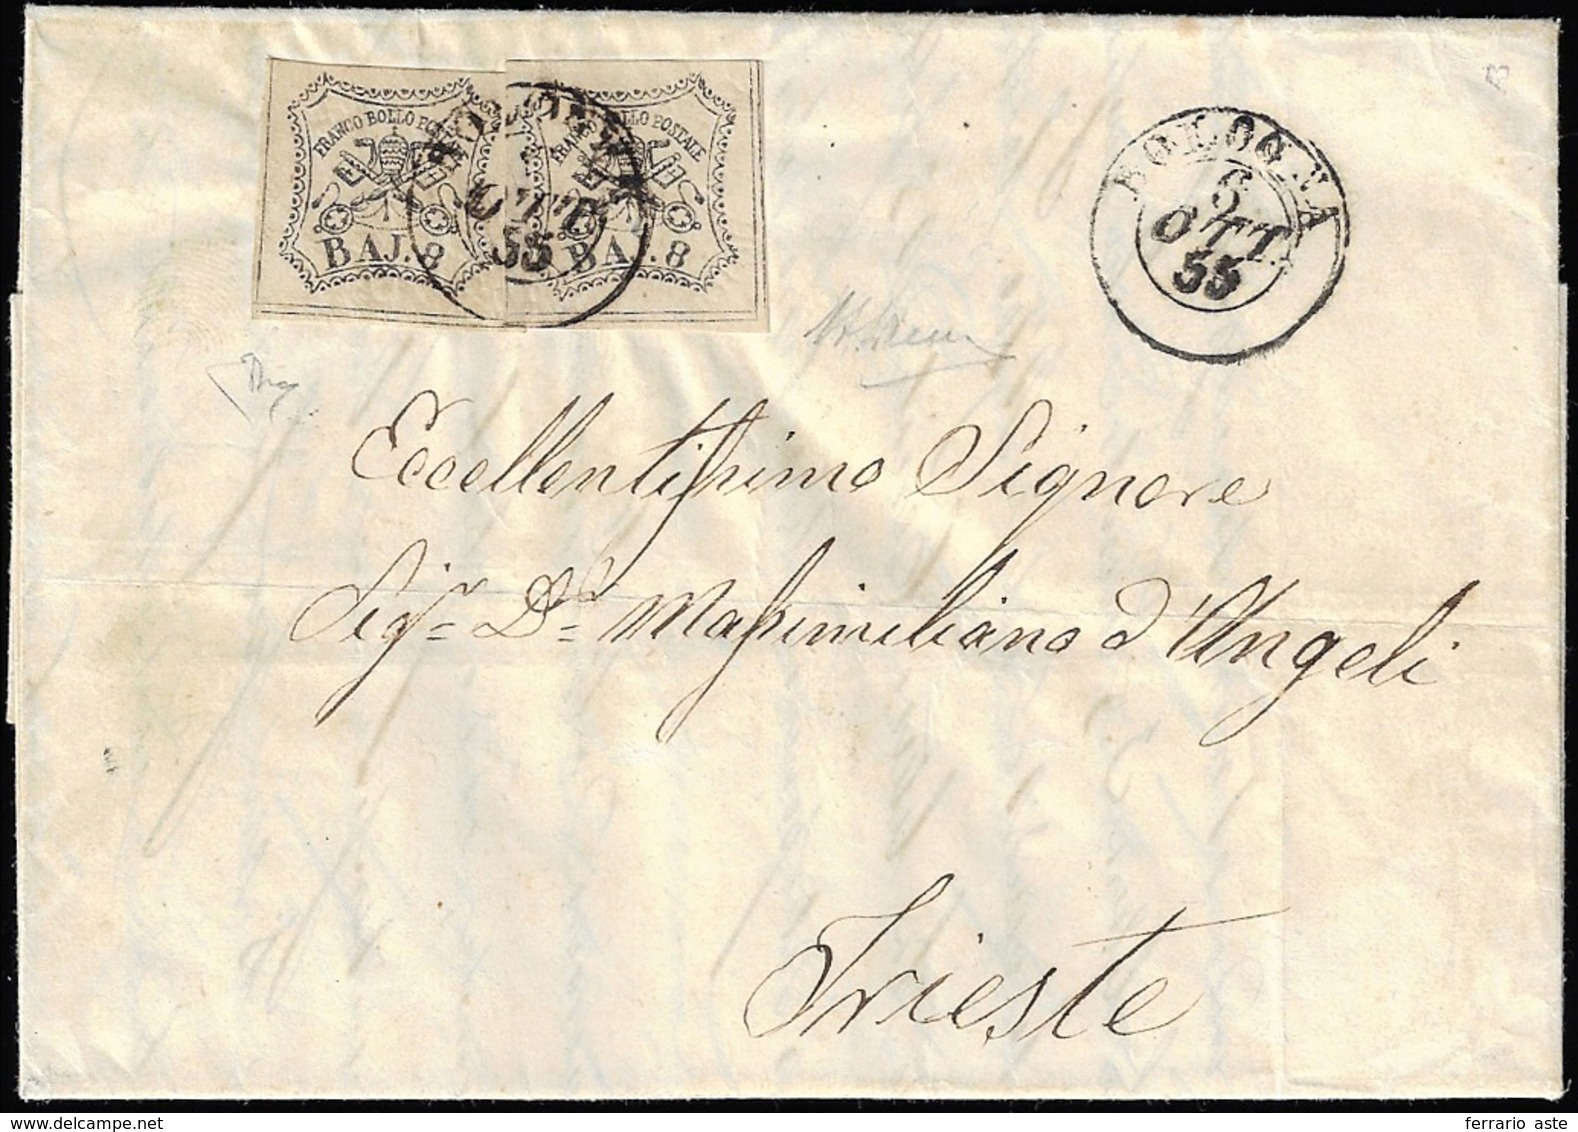 FRANCO BOLLO POSTALE
BAJ. 8
FRANCO BOLLO POSTALE
BAJ. 8
BOLOGNA
6
OTT.
55
BOLOGNA
6
OTT.
55
Eccellentissimo Signore
Sigr. Dr. Massimiliano d'Angeli
Trieste
ferrario aste